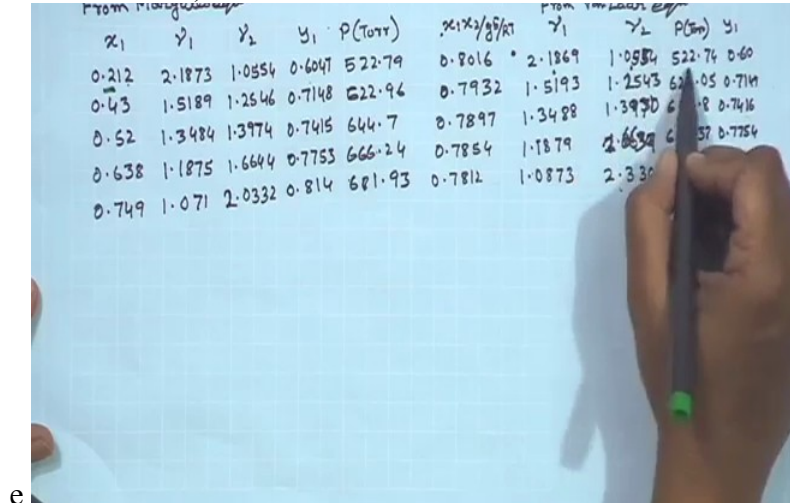 From Margules eqn From Van Laar eqn
x₁ γ₁ γ₂ y₁ P(Torr) x₁x₂/gᴱ/RT γ₁ γ₂ P(Torr) y₁
0.212 2.1873 1.0554 0.6047 522.79 0.8016 2.1869 1.0554 522.74 0.60
0.43 1.5189 1.2546 0.7148 622.96 0.7932 1.5193 1.2543 .05
0.52 1.3484 1.3974 0.7415 644.7 0.7897 1.3488 .8 0.7416
0.638 1.1875 1.6644 0.7753 666.24 0.7854 1.1879 37 0.7754
0.749 1.071 2.0332 0.814 681.93 0.7812 1.0873 2.330
e